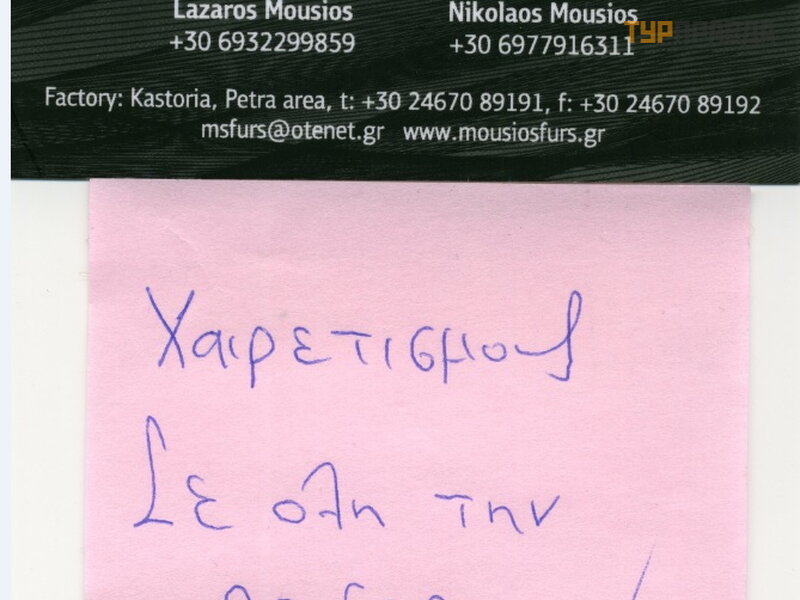 Lazaros Mousios Nikolaos Mousios
+30 6932299859 +30 6977916311
ТУР
Factory: Kastoria, Petra area, t: +30 24670 89191, f: +30 24670 89192
msfurs@otenet.gr www.mousiosfurs.gr
Χαιρετισμους
Σε ολη την